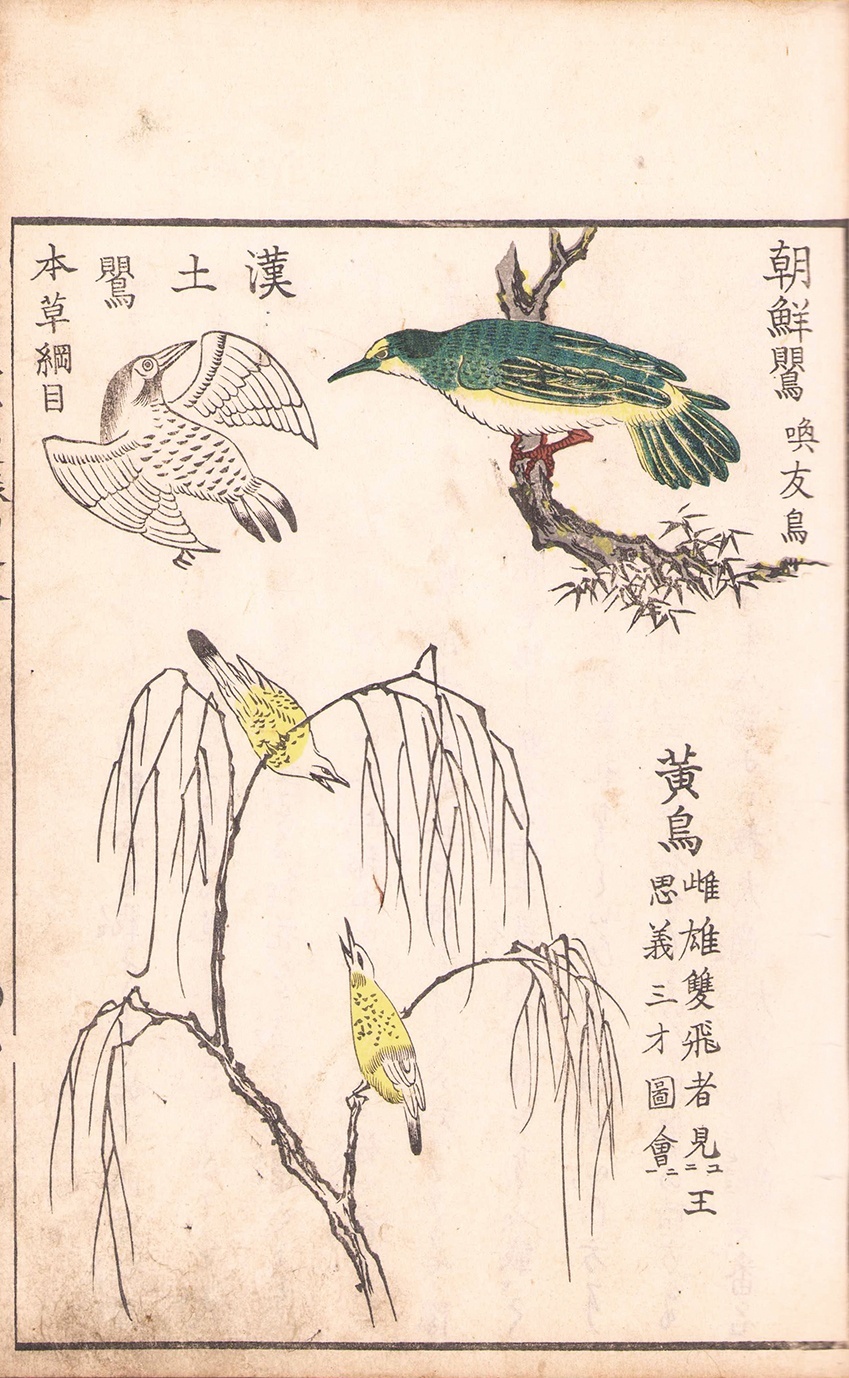 朝鮮鸎
喚友鳥
漢土
鸎
本草綱目
黃鳥
雌雄雙飛者見ユ二王
思義三才圖會一二